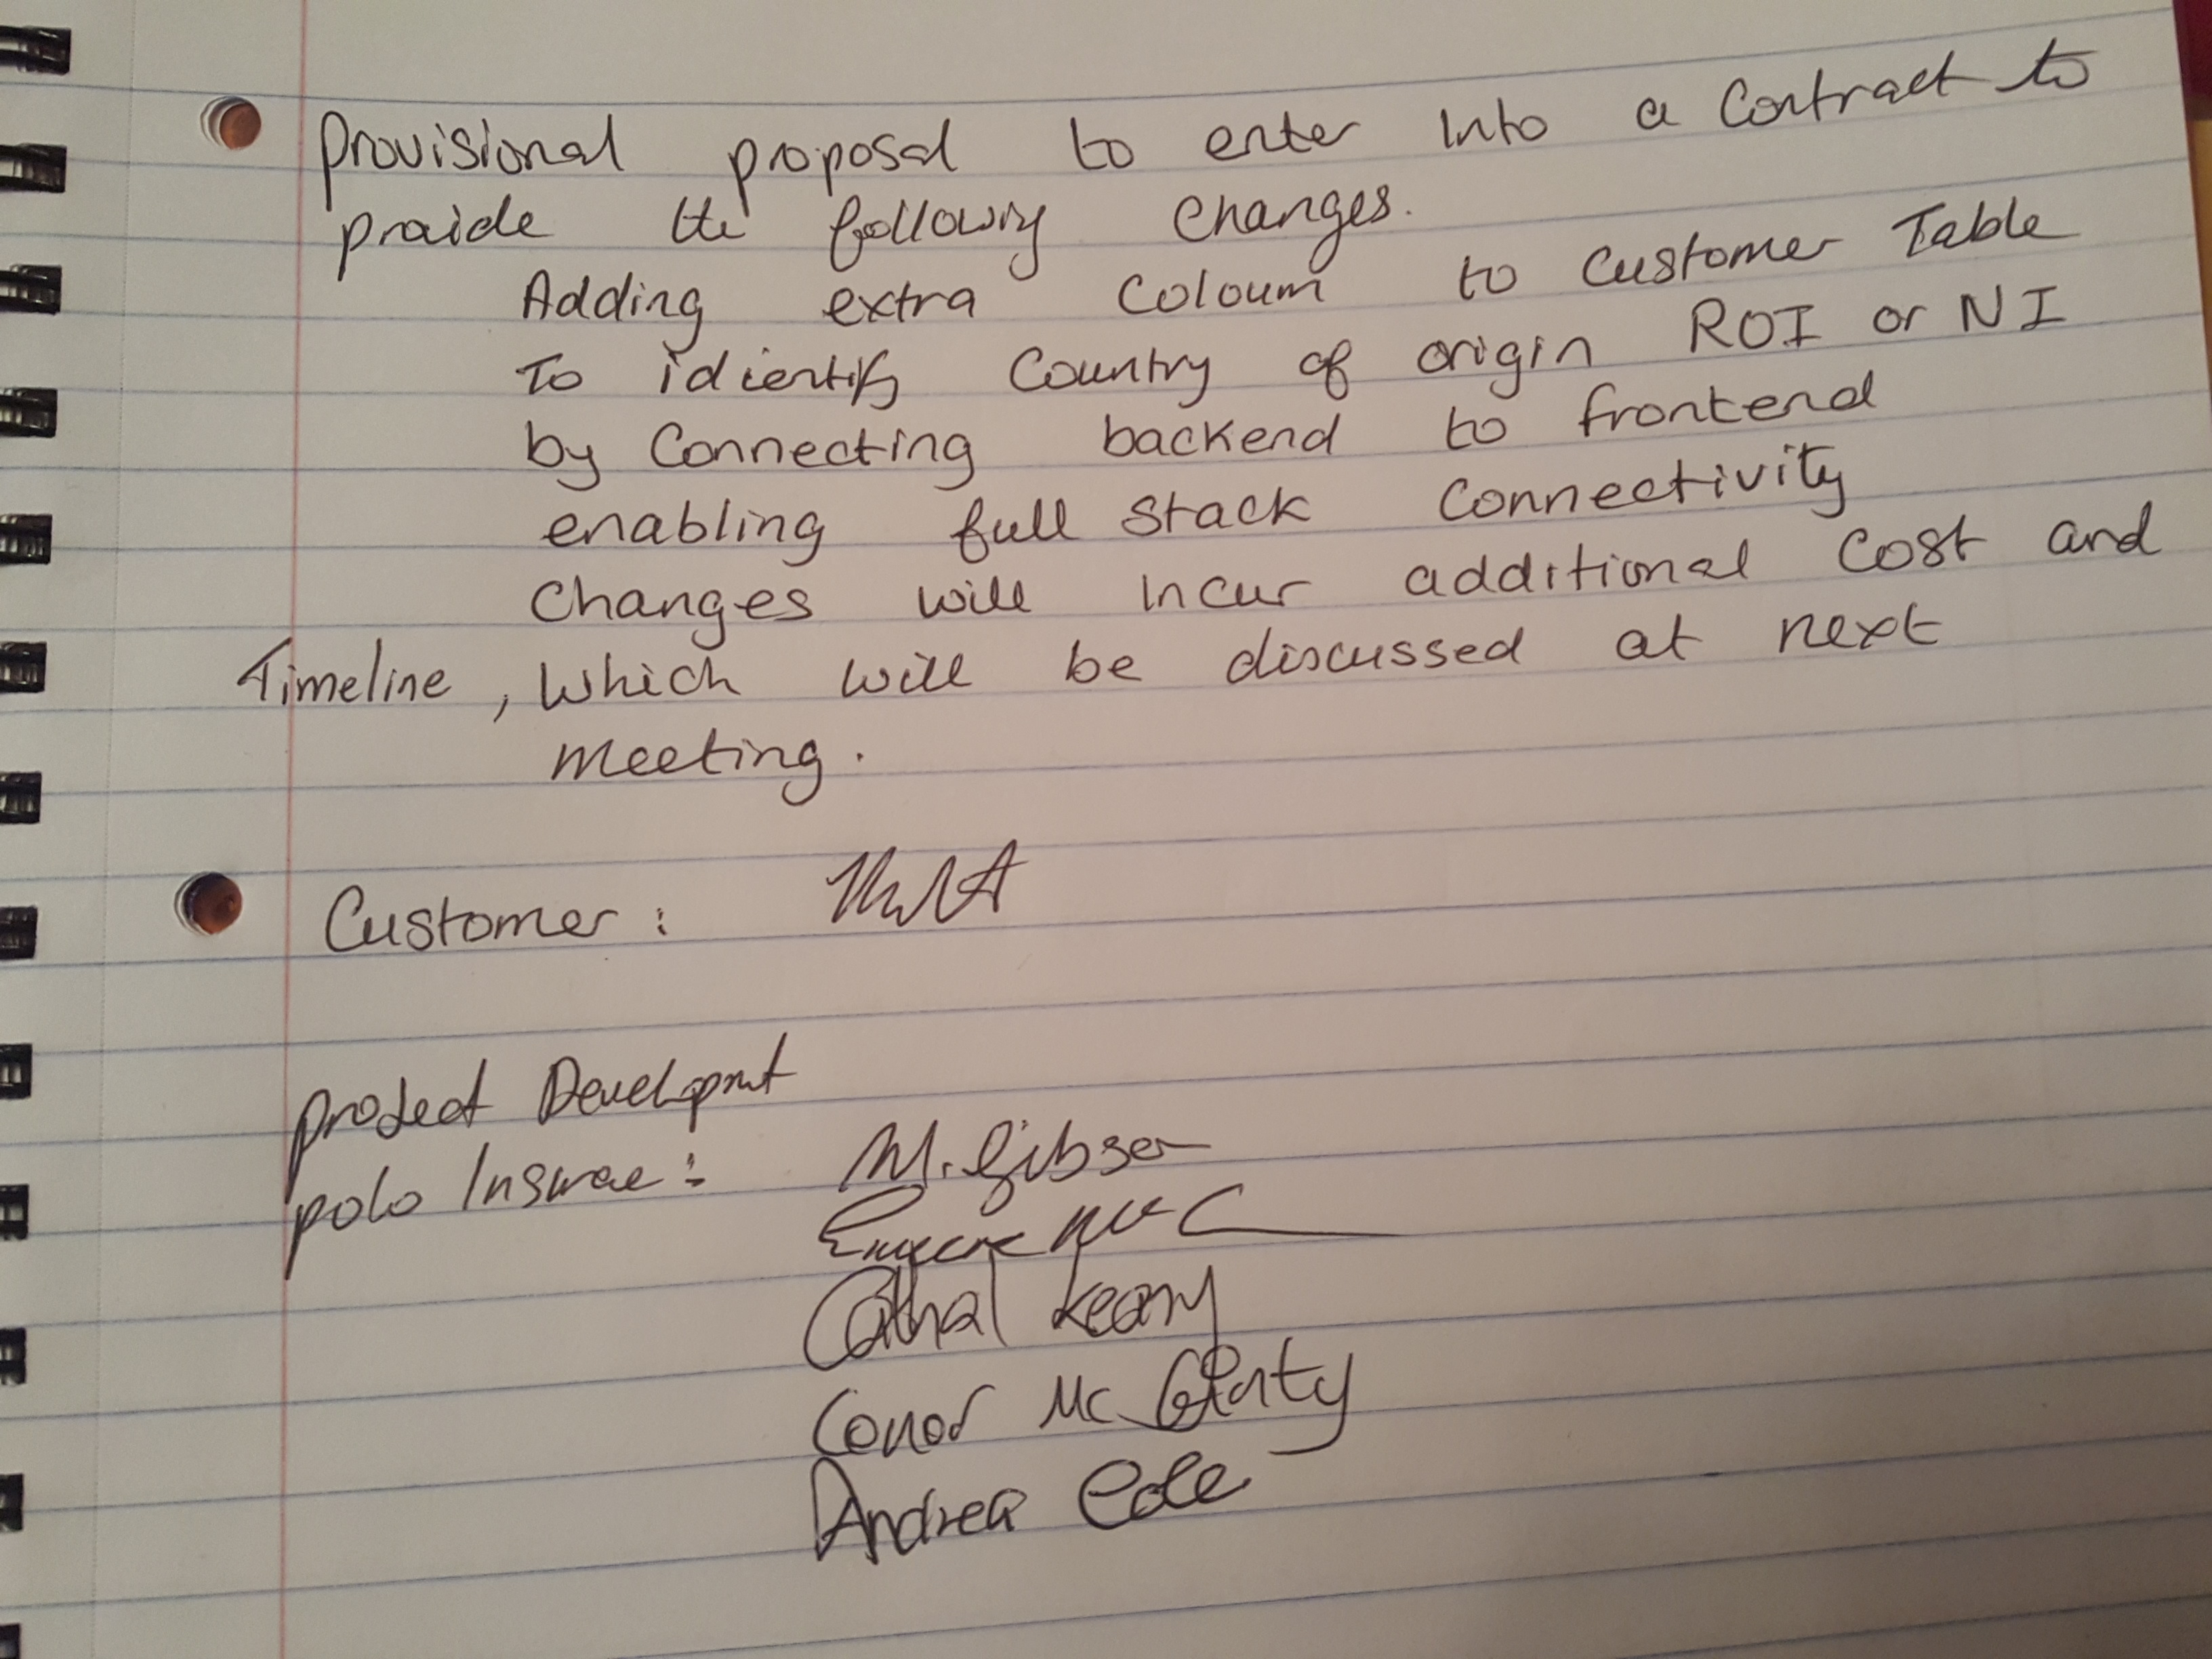 Provisional proposal to enter into a Contract to
provide the following changes.
Adding extra Coloum to Customer Table
To idientify Country of origin ROI or NI
by Connecting backend to frontend
enabling full stack Connectivity
Changes will incur additional Cost and
Timeline, Which will be discussed at next
meeting.
Customer :
Project Development
polo Insurance :
M. Gibson
Eugene Mc C
Cathal Keany
Conor Mc Ginty
Andrea Cole